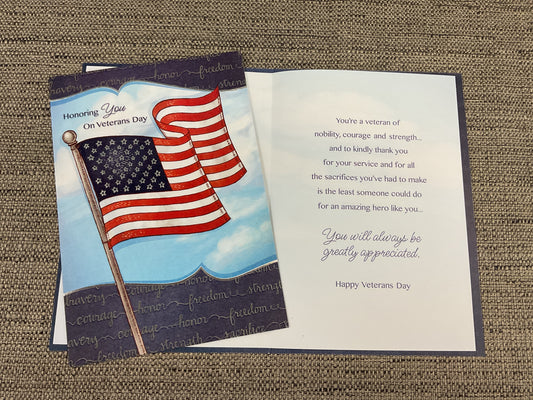 bravery courage honor freedom
strength
Honoring You
On Veterans Day
bravery courage honor freedom strength
courage honor freedom
bravery strength sacrifice
You're a veteran of
nobility, courage and strength...
and to kindly thank you
for your service and for all
the sacrifices you've had to make
is the least someone could do
for an amazing hero like you...
You will always be
greatly appreciated.
Happy Veterans Day